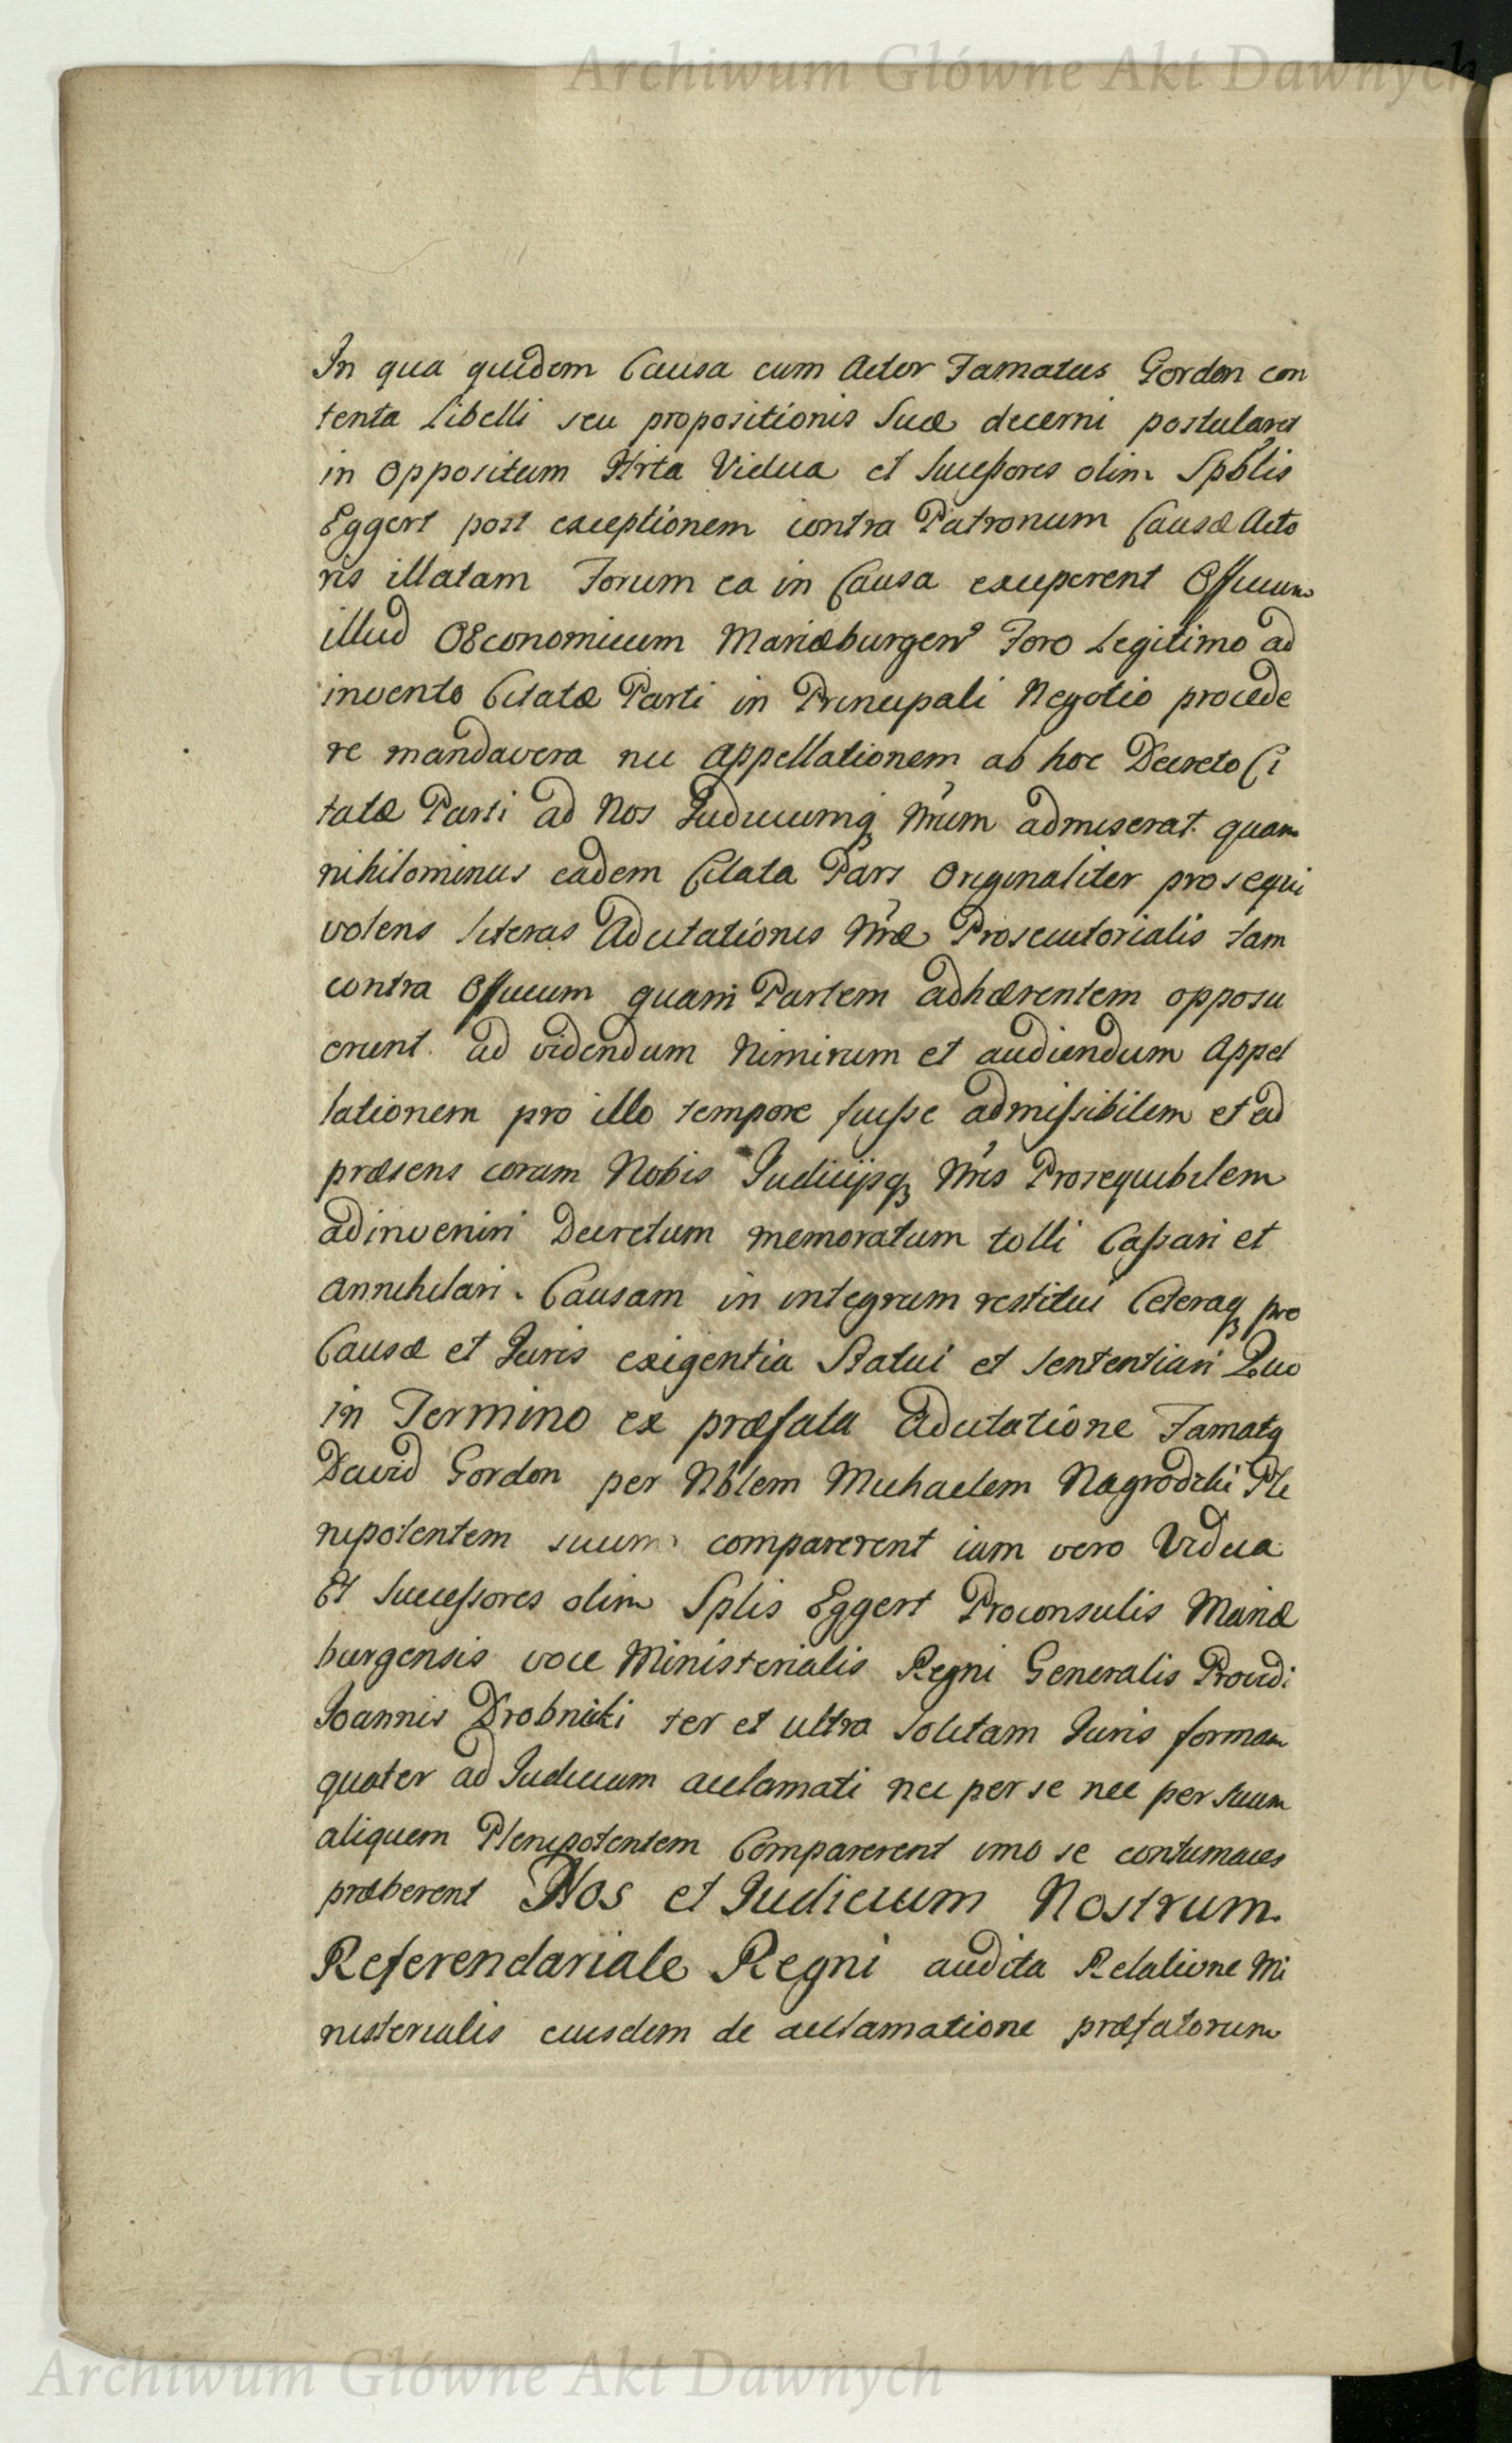 Archiwum Główne Akt Dawnych
In qua quidem Causa cum Actor Famatus Gordon con
tenta Libelli seu propositionis Suæ decerni postularet
in oppositum Vidua et Sucessores olim Spblis
Eggert post exceptionem contra Patronum Causæ Acto
ris illatam Forum ea in Causa exciperent Officium
illud OEconomicum Mariæburgen Foro Legitimo ad
invento Citatæ Parti in Principali Negotio procede
re mandavera nec appellationem ab hoc Decreto Ci
tatæ Parti ad Nos Judiciumq Nrum admiserat quam
nihilominus eadem Citata Pars Originaliter prosequi
volens literas Adcitationis Nræ Prosecutorialis tam
contra Officium quam Partem adhærentem opposu
erunt ad videndum Nimirum et audiendum Appel
lationem pro illo tempore fuisse admissibilem et ad
præsens coram Nobis Judicijsq Nris Prosequibilem
adinveniri Decretum memoratum tolli Cassari et
Annihilari. Causam in integrum restitui Ceteraq pro
Causæ et Juris exigentia Statui et sententiari Quo
in Termino ex præfata Adcitatione Famatq
David Gordon per Nblem Michaelem Nagrodzki Ple
nipotentem suum comparerent iam vero Vidua
Et Successores olim Splis Eggert Proconsulis Mariæ
burgensis voce Ministerialis Regni Generalis Providi
Joannis Drobnicki ter et ultra Solitam Juris formam
quater ad Judicium acclamati nec per se nec per suum
aliquem Plenipotentem Comparerent imo se contumaces
præberent Nos et Judicium Nostrum
Referendariale Regni audita Relatione Mi
nisterialis eiusdem de acclamatione præfatorum
Archiwum Główne Akt Dawnych